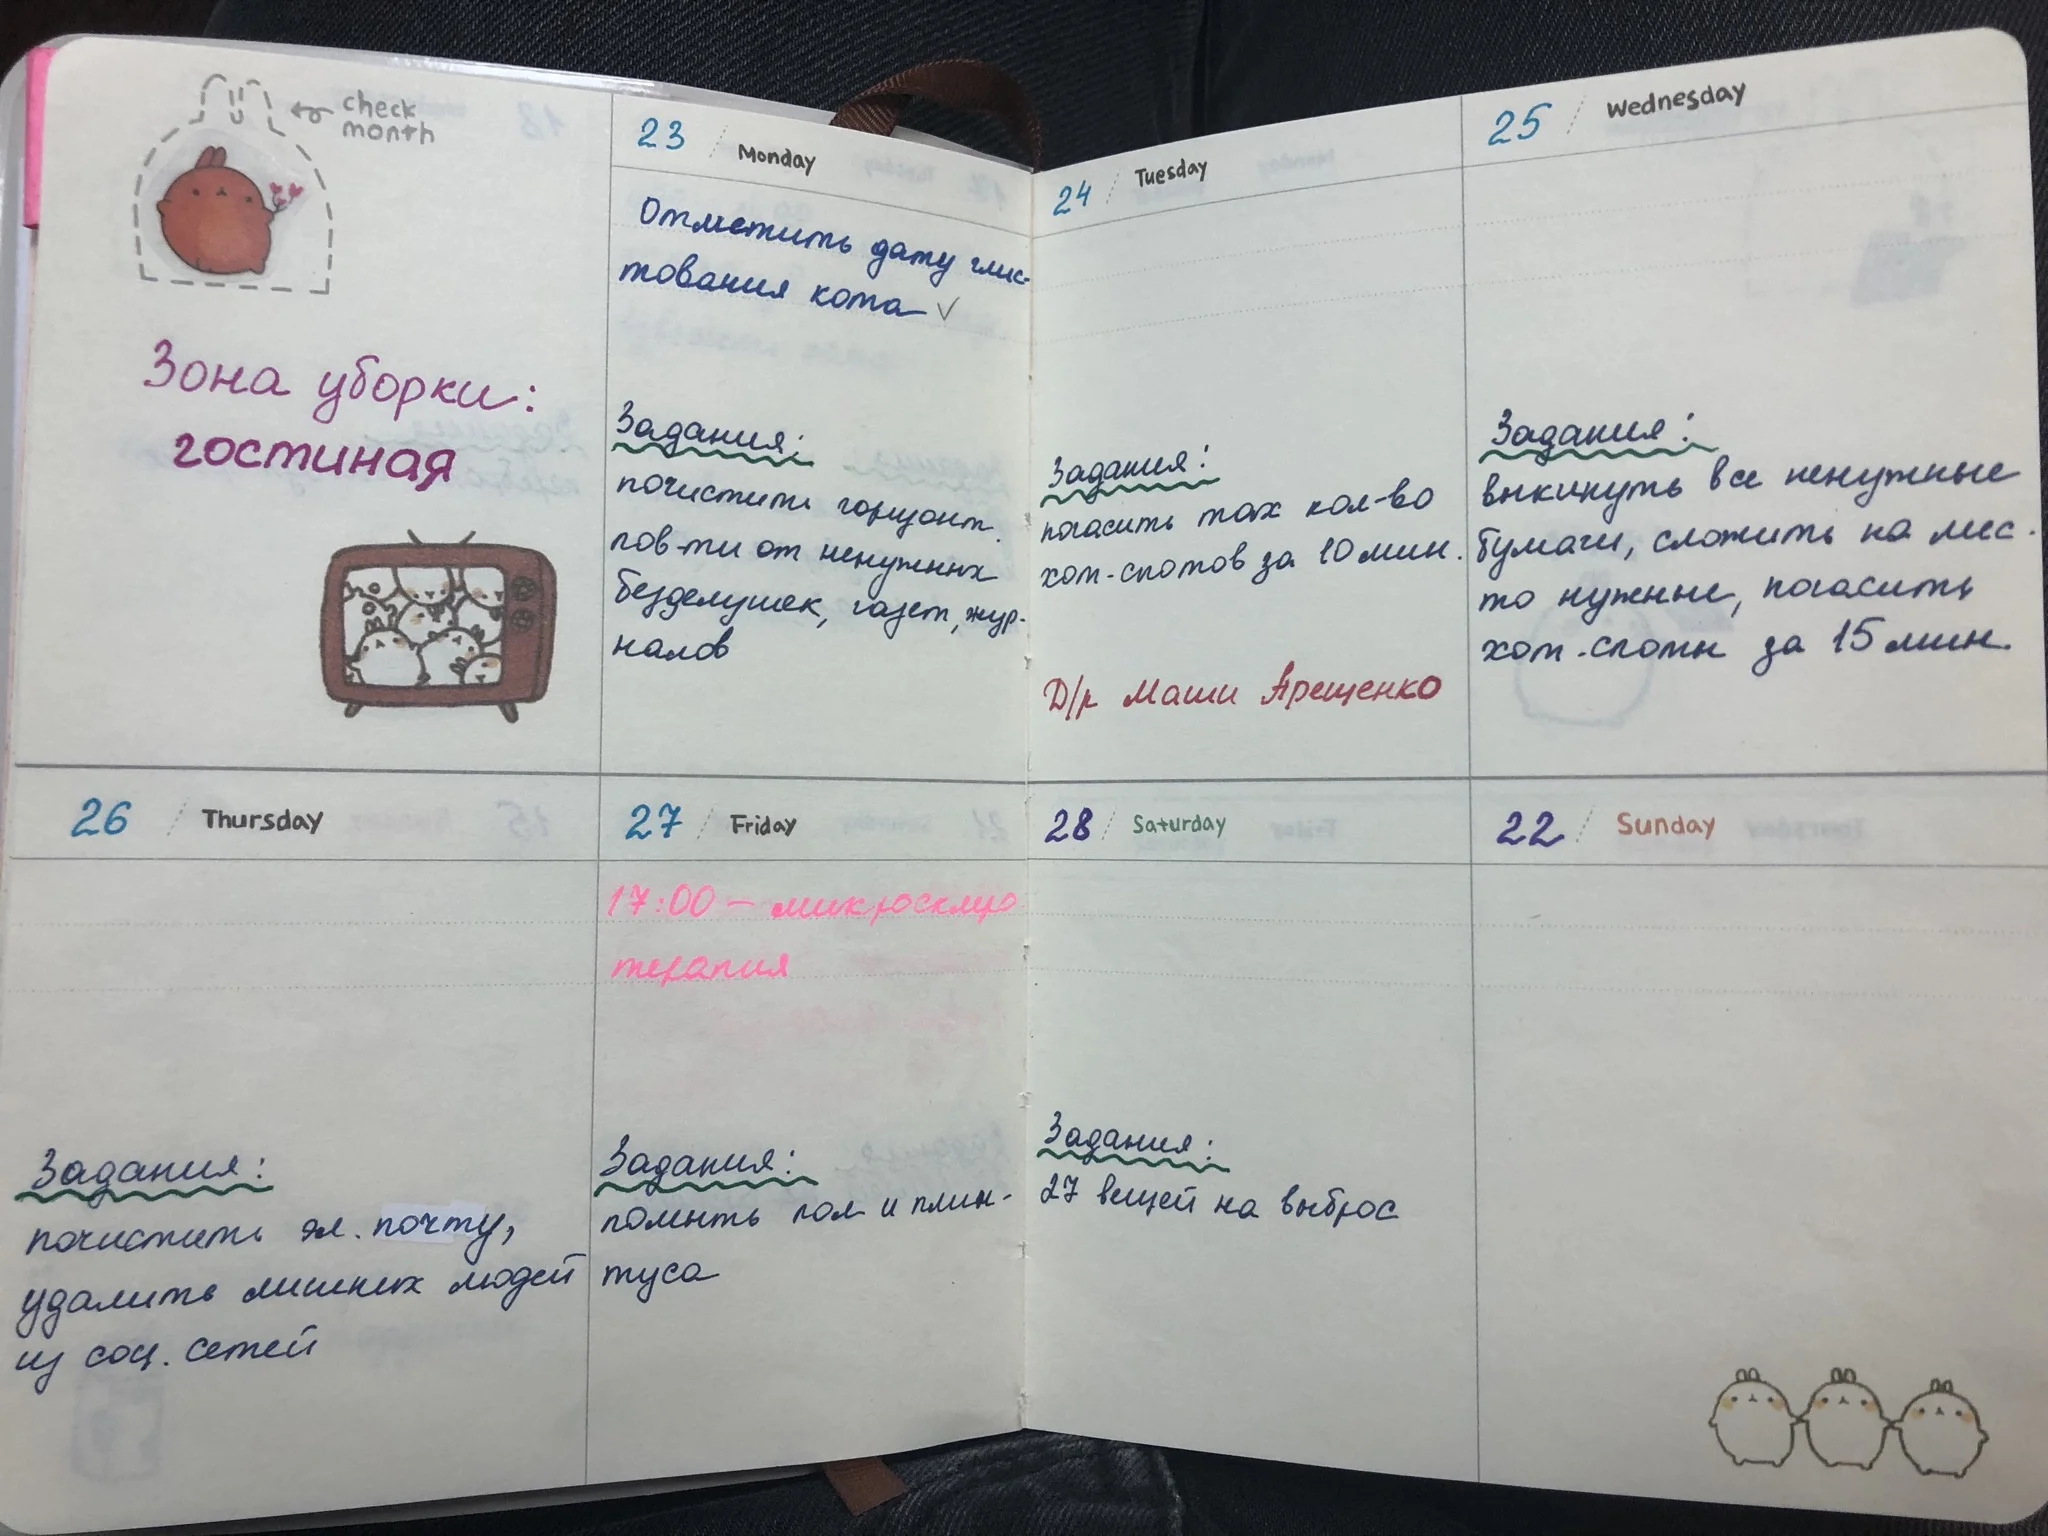 check
month
Зона уборки:
гостиная
23 Monday
Отметить дату глис-
тования кота ✓
Задания:
почистить горизонт.
пов-ти от ненужных
безделушек, газет, жур-
налов
24 Tuesday
Задания:
погасить max кол-во
хот-спотов за 10 мин.
Д/р Маши Арещенко
25 Wednesday
Задания:
выкинуть все ненужные
бумаги, сложить на мес-
то нужные, погасить
хот-споты за 15 мин.
26 Thursday
Задания:
почистить эл. почту,
удалить лишних людей
из соц. сетей
27 Friday
17:00 – микросклеро
терапия
Задания:
помыть пол и плин-
туса
28 Saturday
Задания:
27 вещей на выброс
22 Sunday